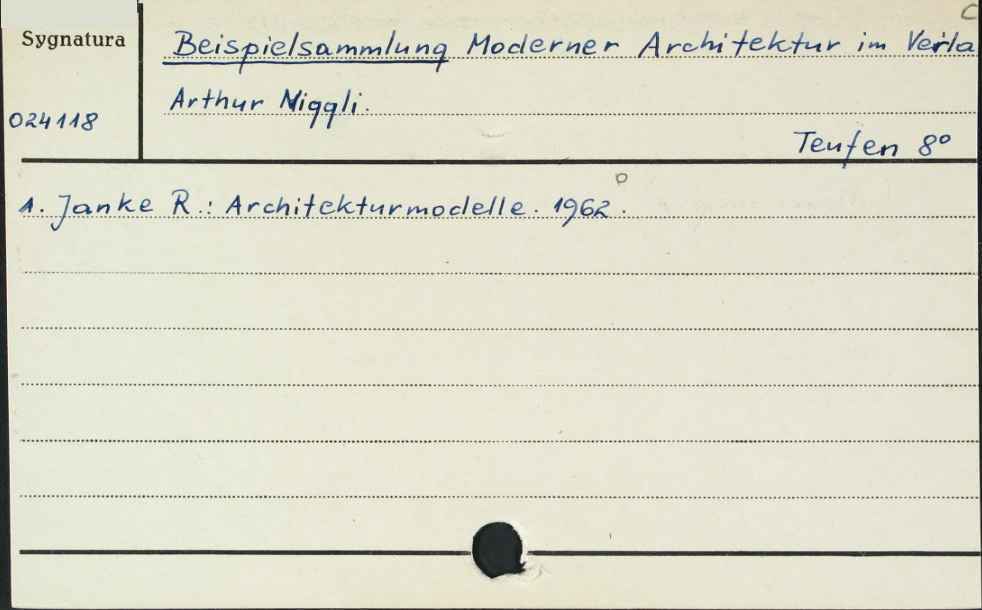 Sygnatura
Beispielsammlung Moderner Architektur im Verla
Arthur Niggli.
024118
Teufen 8°
1. Janke R.: Architekturmodelle. 1962.